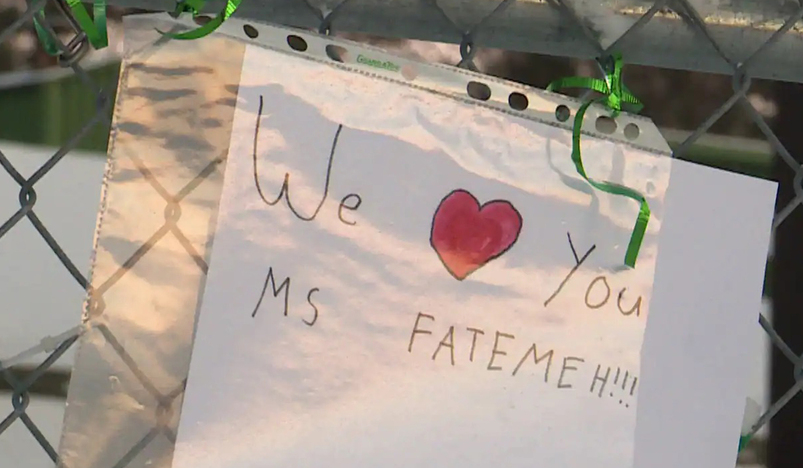 We ❤ You
Ms
FATEMEH!!!